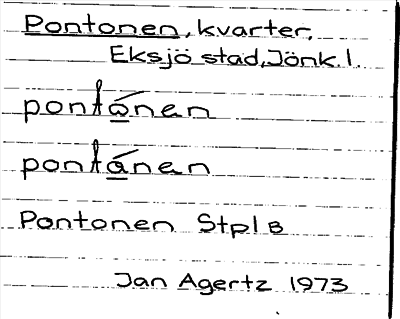 Pontonen, kvarter.
Eksjö stad, Jönk. l.
pontǻ̲nen
pontá̲nen
Pontonen Stpl B
Jan Agertz 1973